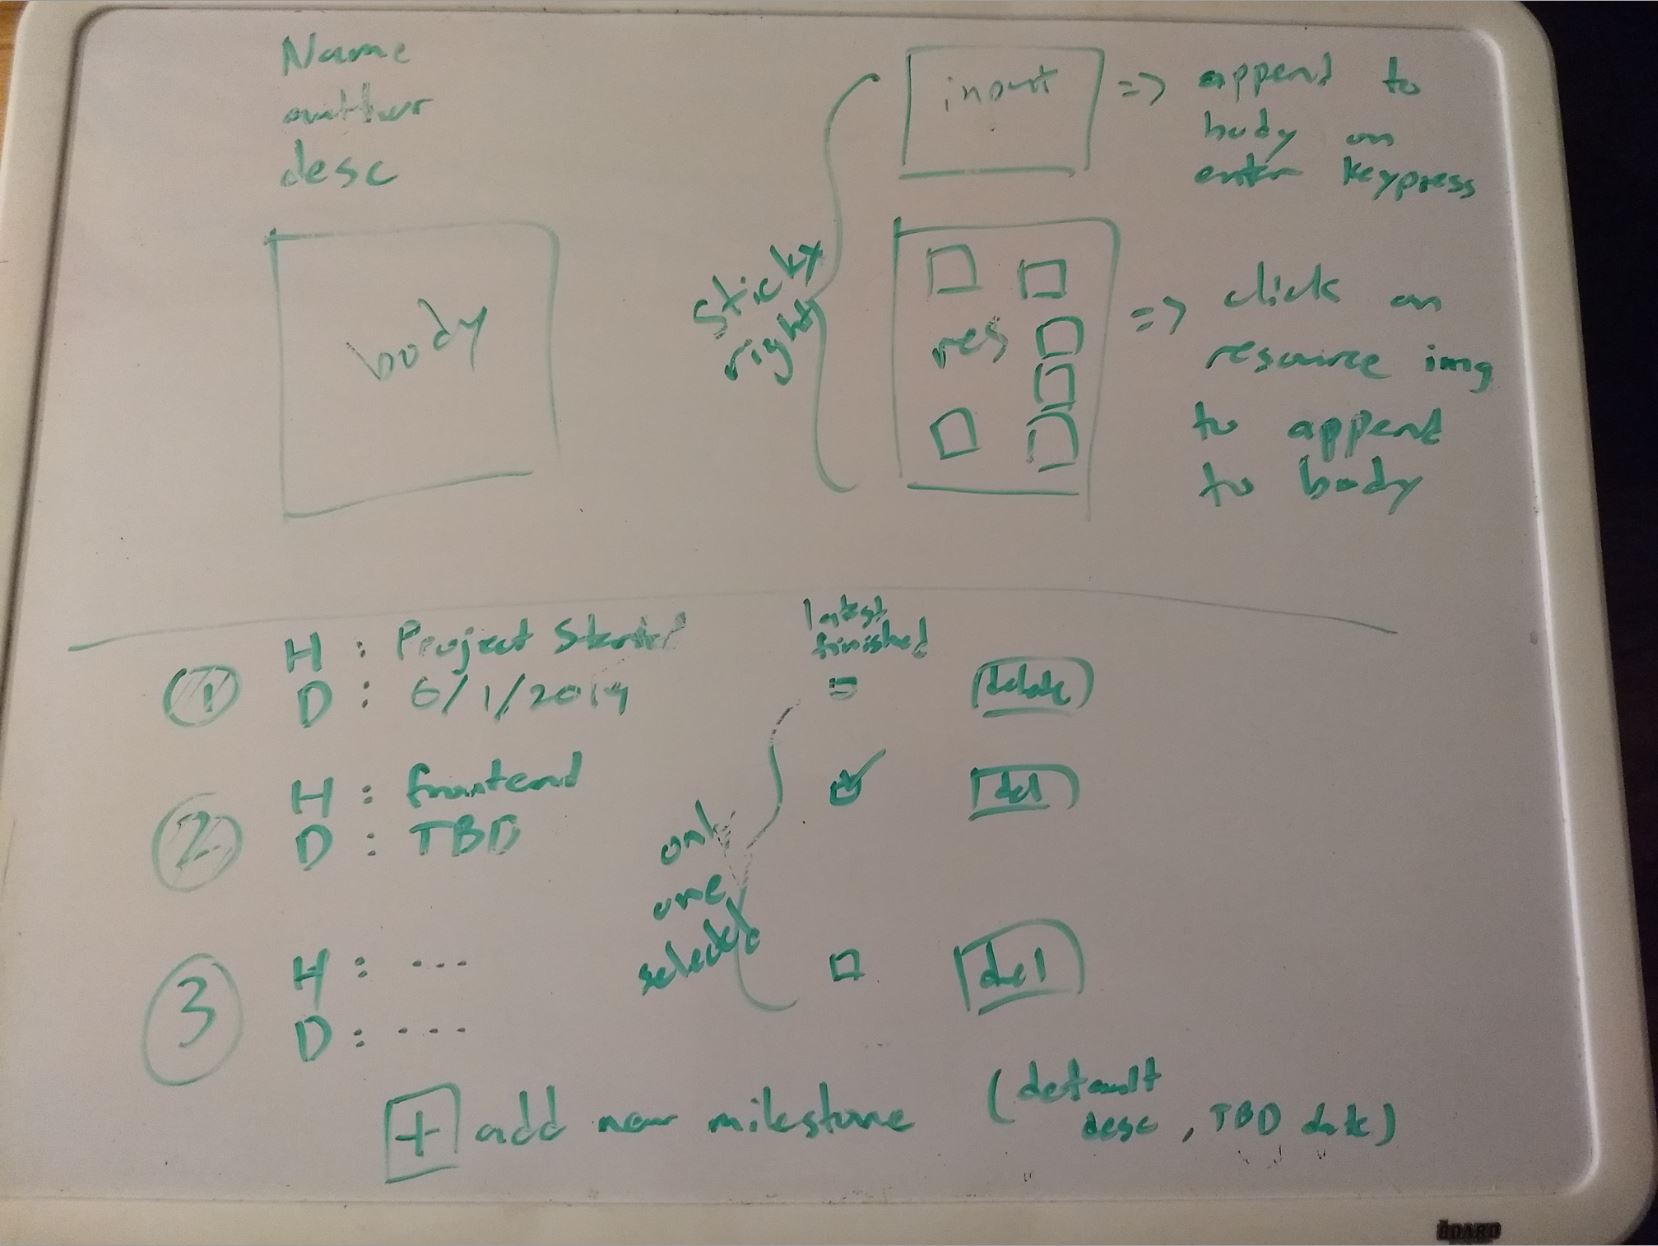 Name
author
desc
body
sticky
right
input
=> append to
body on
enter keypress
res
=> click on
resource img
to append
to body
latest
finished
1 H : Project Started
D : 6/1/2019
delete
2 H : frontend
D : TBD
del
only
one
selected
3 H : ...
D : ....
del
+ add new milestone (default
desc, TBD date)
BOARD